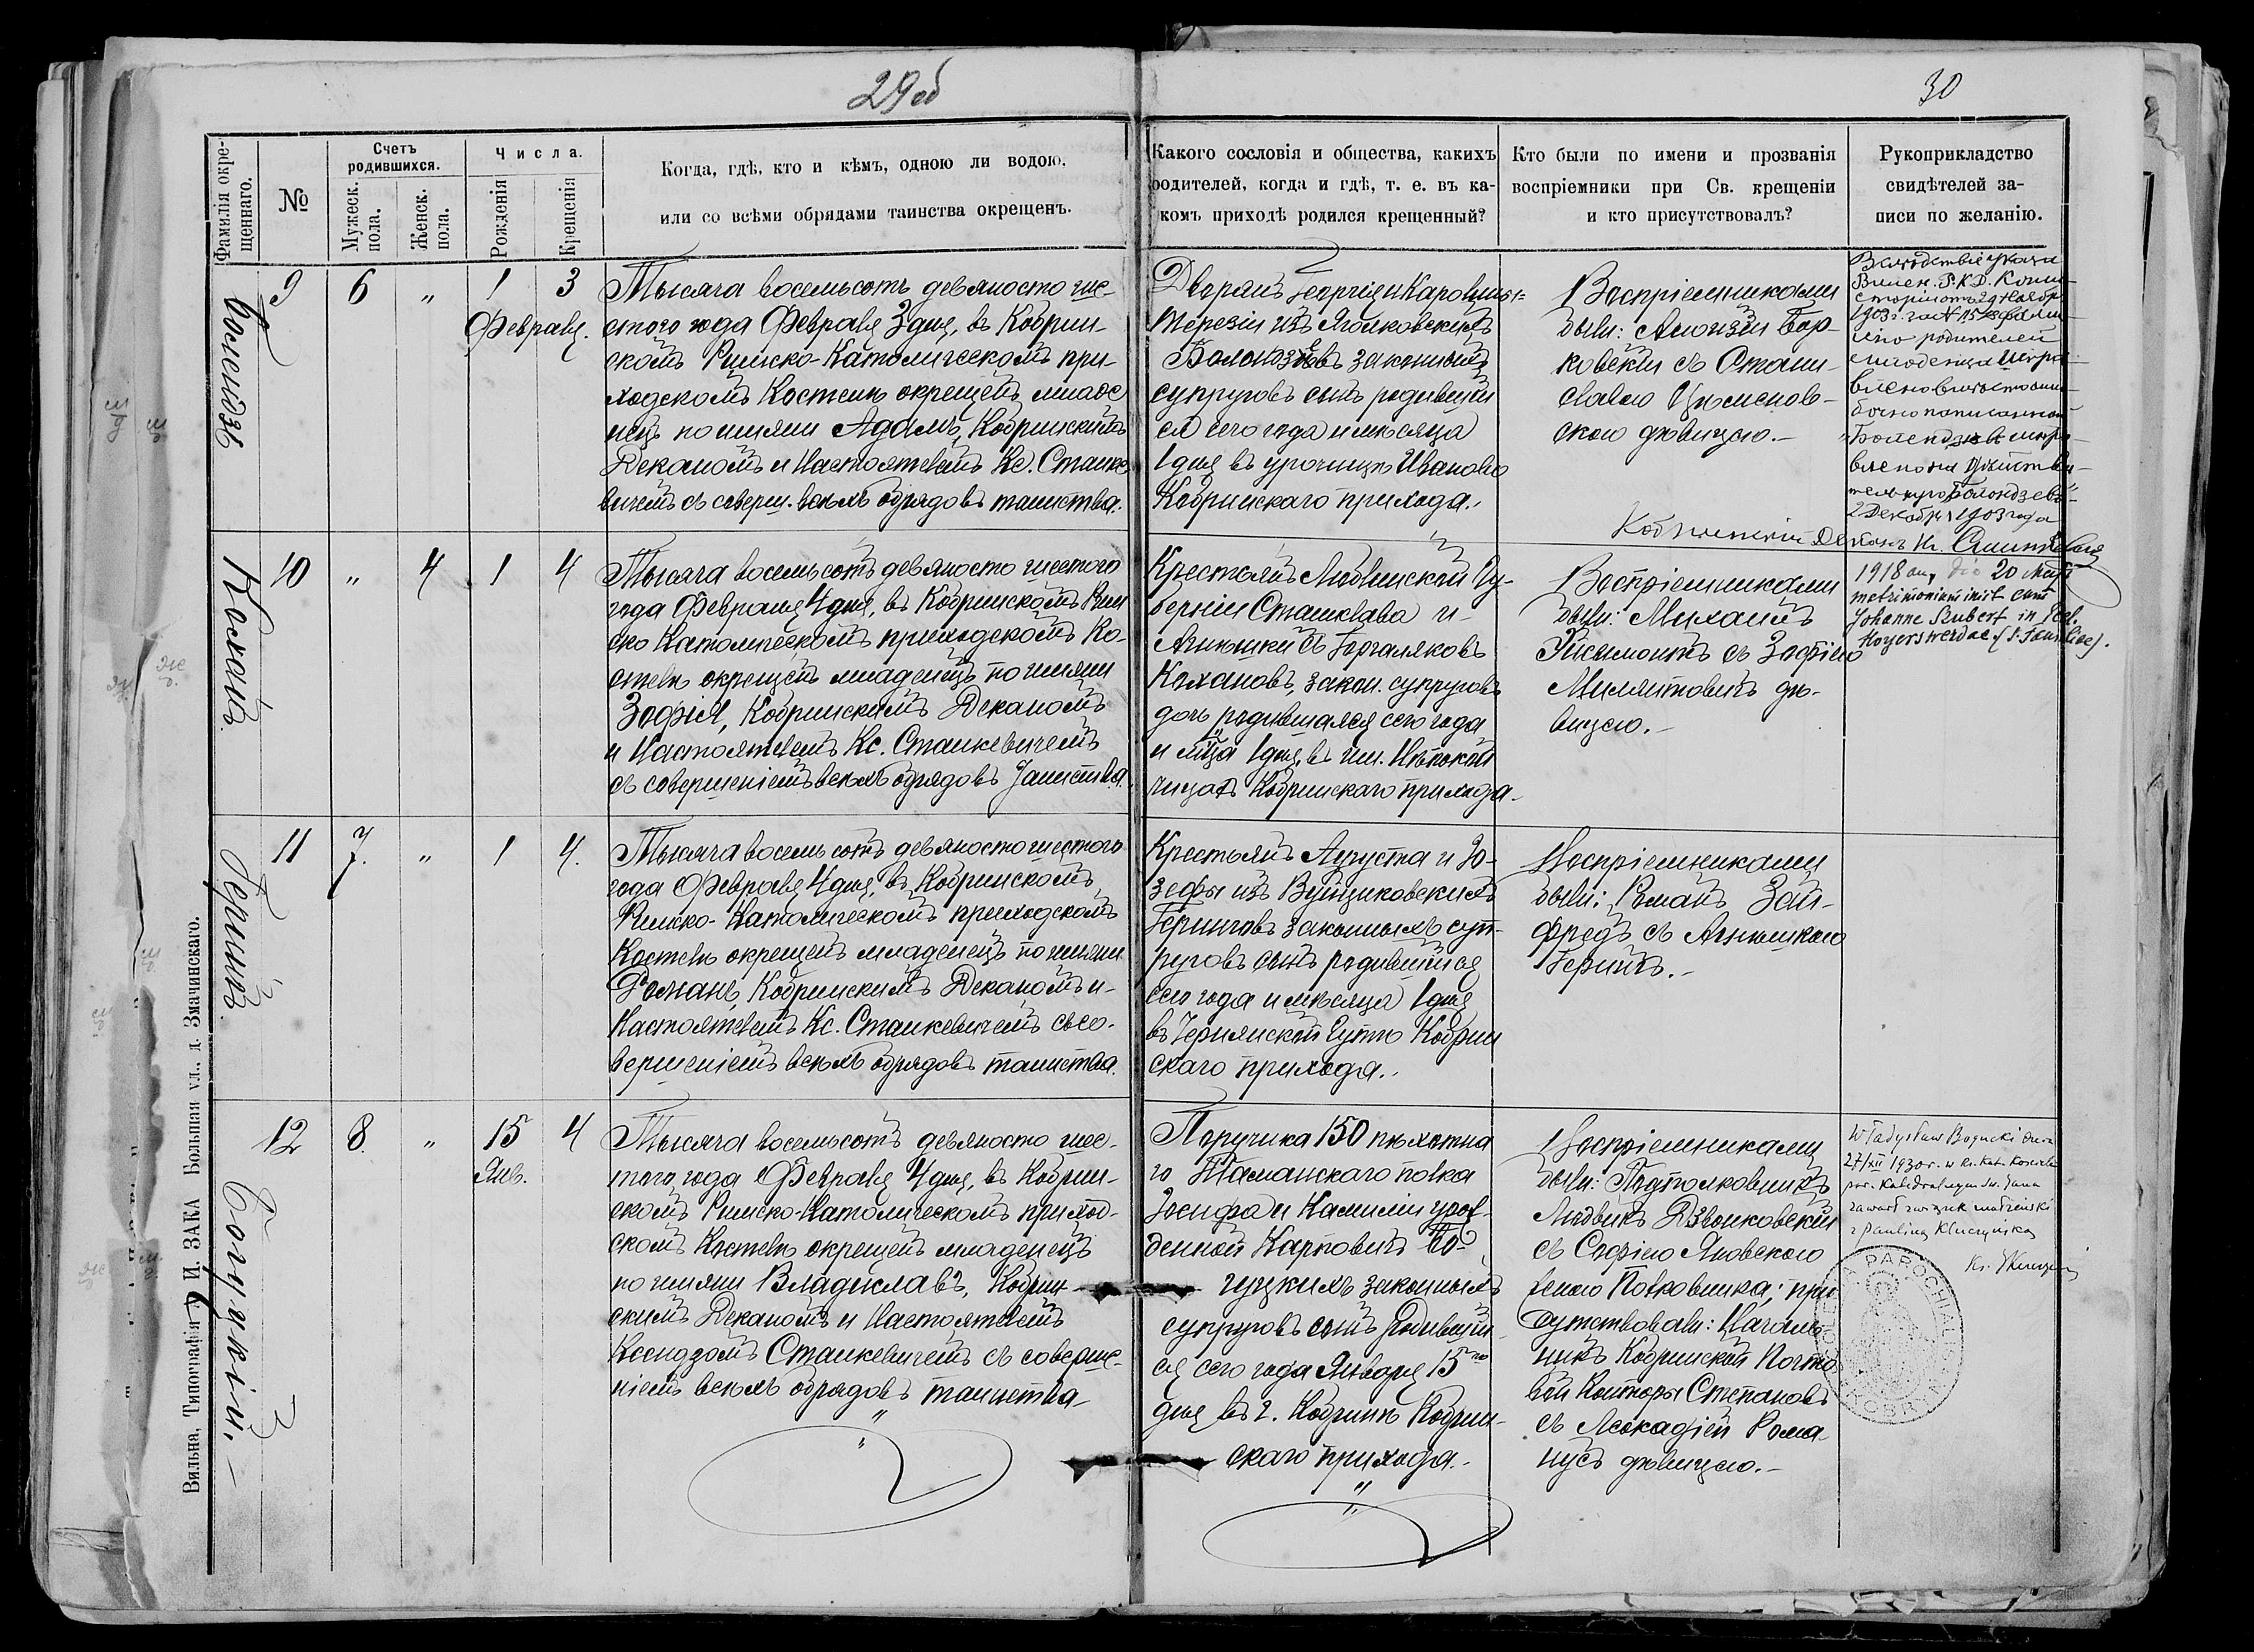 29об
30
Фамилія окре-
щеннаго.
№
Счетъ
родившихся.
Мужеск.
пола.
Женск.
пола.
Числа.
Рожденія
Крещенія
Когда, гдѣ, кто и кѣмъ, одною ли водою,
или со всѣми обрядами таинства окрещенъ.
Какого сословія и общества, какихъ
родителей, когда и гдѣ, т. е. въ ка-
комъ приходѣ родился крещенный?
Кто были по имени и прозванія
воспріемники при Св. крещеніи
и кто присутствовалъ?
Рукоприкладство
свидѣтелей за-
писи по желанію.
9
6
"
1
3
Февраля.
Тысяча восемьсотъ девяносто ше-
стого года Февраля 3 дня, въ Кобрин-
скомъ Римско-Католическомъ при-
ходскомъ Костелѣ окрещенъ младе
нецъ по имени Адамъ, Кобринскимъ
Деканомъ и Настоятелемъ Кс. Станке
вичемъ съ соверш. всѣхъ обрядовъ таинства.
Дворянъ Георгія и Каролины=
Терезіи изъ
законныхъ
супруговъ сынъ родившій
ся сего года и мѣсяца
1 дня въ урочищѣ Иваново
Кобринскаго прихода.
Воспріемниками
были: Алоизій Бор-
ковскій съ Стани-
славою
скою дѣвицею.-
Вслѣдствіе указа
Вилен. Р. К. Д. Конси-
сторіи отъ 29 Ноябр.
1903 г. за №
родителей
младенца испра-
влено вмѣсто оши-
бочно написанной
2 Декабря 1903 года
Кобринскій Деканъ Кс.
Коханъ
10
"
4
1
4
Тысяча восемьсотъ девяносто шестого
года Февраля 4 дня, въ Кобринскомъ Рим
ско Католическомъ приходскомъ Ко-
стелѣ окрещенъ младенецъ по имени
Зофія, Кобринскимъ Деканомъ
и Настоятелемъ Кс. Станкевичемъ
съ совершеніемъ всѣхъ обрядовъ Таинства.
Крестьянъ Люблинской Гу-
берніи Станислава и
Агнешки съ
Кохановъ, закон. супруговъ
дочь родившаяся сего года
и м-ца 1 дня, въ им.
Кобринскаго прихода-
Воспріемниками
были: Михаилъ
съ Зофіею
дѣ-
вицею.-
1918 an, die 20 Maji
matrimonium iniit cum
Johanne Szubert in Eccl.
Hoyerswerdae (S. Familiae).
Герингъ
11
7.
"
1
4.
Тысяча восемьсотъ девяносто шестого
года Февраля 4 дня, въ Кобринскомъ
Римско-Католическомъ приходскомъ
Костелѣ окрещенъ младенецъ по имени
Романъ, Кобринскимъ Деканомъ и-
Настоятелемъ Кс. Станкевичемъ съ со-
вершеніемъ всѣхъ обрядовъ таинства.
Крестьянъ Августа и Іо-
зефы изъ Вуйциковскихъ
Геринговъ законныхъ суп-
руговъ сынъ родившійся
сего года и мѣсяца 1 дня
въ Чернянской Гутѣ Кобрин
скаго прихода.
Воспріемниками
были: Романъ Зай-
фредъ съ Агнешкою
Герингъ.-
Богуцкій.-
12
8.
"
15
4
Янв.
Тысяча восемьсотъ девяносто шес-
того года Февраля 4 дня, въ Кобрин-
скомъ Римско-Католическомъ приход-
скомъ Костелѣ окрещенъ младенецъ
по имени Владиславъ, Кобрин-
скимъ Деканомъ и Настоятелемъ
Ксендзомъ Станкевичемъ съ соверше-
ніемъ всѣхъ обрядовъ таинства-
Поручика 150 пѣхотна
го Таманскаго полка
Іосифа и Камиліи урож-
денной Карповичъ Бо-
гуцкихъ законныхъ
супруговъ сынъ родившій
ся сего года Января 15го
дня въ г. Кобринѣ Кобрин-
скаго прихода.-
Воспріемниками
были: Подполковникъ
Людвикъ Дзвонковскій
съ Софіею Яновскою
женою Полковника; при
сутствовали: Началь
никъ Кобринской Почто
вой Конторы Степановъ
съ Леокадіей Рома-
нусъ дѣвицею.-
Władysław Bogucki dnia
27/XII 1930 r. w Rz. Kat. Kościele
par. Katedralnym Św. Jana
zawarł związek małżeński
z Pauliną Kluczyńską
PAROCHIALIS
Вильна, Типографія И. ЗАКА Большая ул., д. Змачинскаго.